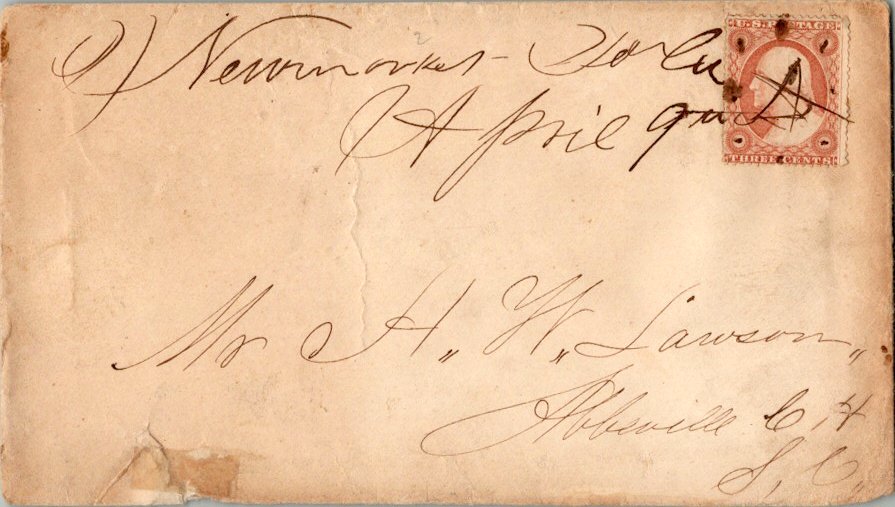 Newmarket -
April 9
U.S. POSTAGE
THREE CENTS
Mr H. W. Lawson,
Abbeville C, H
S, C,